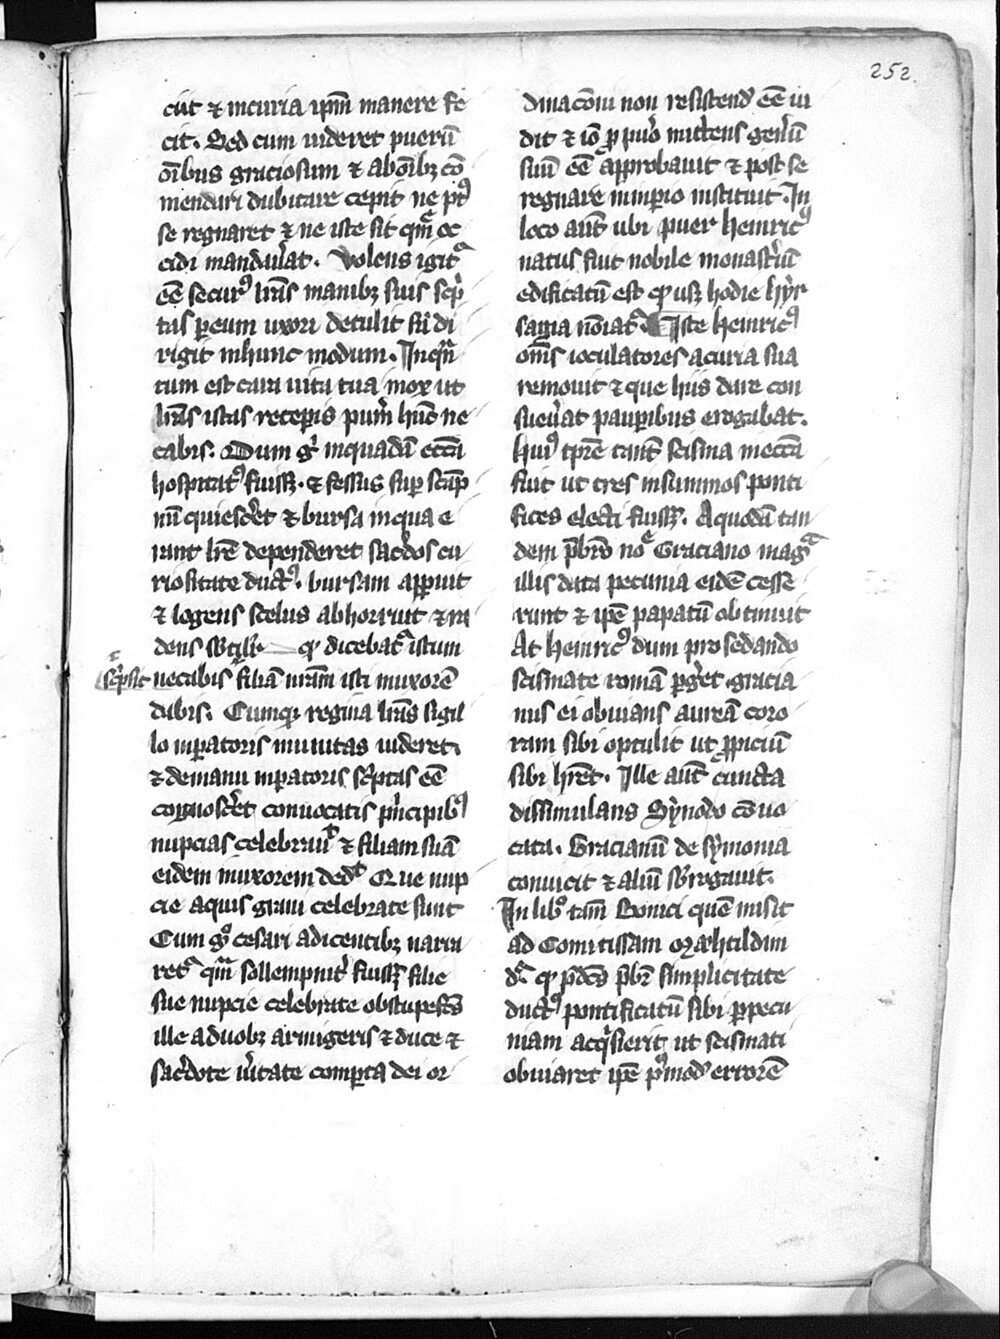 252.
cut ⁊ incuria ip̄m manere fe
cit. Sed cum uideret pueꝝ
oībus graciosum ⁊ ab oībꝫ cō
mendari dubitare cepit ne pꝰ
se regnaret ⁊ ne iste sit quē oc
cidi mandau̾at. Volens igitᷣ
eē securꝰ lrās manibꝫ suis scͥp
tas ꝑ eum uxori detulit sū di
rigit in hunc modum. Inqᷓn
tum est cara uita tua mox ut
lrās istas receꝑis pueꝝ hūc ne
cabis. Dum gͦ in quadā eccīa
hospitatꝰ fuissꝫ. ⁊ fessus suꝑ scāp
nū quiesc̾et ⁊ bursa in qua e
rant lrē dependeret sac̾dos cu
riositate ductꝰ. bursam apperuit
⁊ legens scelus abhorruit ⁊ ra
dens ꝙ dicebatᷣ istum
scͥpsit necabis filiā nr̄am isti in uxorē
dabis. Cumqꝫ regina lrās sigil
lo inꝑatoris munitas uideret
⁊ de manu inꝑatoris sc̾ptas eē
cognosc̾et conuocatis pͥncipibꝰ
nupcias celebrauͭ ⁊ filiam suā
eidem in uxorem dedͭ Que nup
cie aquis grani celebrate sunt
Cum gͦ cesari a dicentibꝫ narra
retᷣ qm̄ sollempnitͬ fuissꝫ filie
sue nupcie celebrate obstupefc̄s
ille a duobꝫ armigeris ⁊ duce ⁊
sac̾dote u̾itate comꝑta dei or
dinacōni non resistendꝰ eē ui
dit ⁊ iō ꝑ pueꝝ mittens geneꝝ
suū eē approbauit ⁊ post se
regnare in inꝑio instituit. In
loco aūt ubi puer heinricꝰ
natus fuit nobile monast̾iū
edificatū est qᵈ usqꝫ hodie hyr
sagia nōiatᷣ. Iste heinricꝰ
om̄s ioculatores a curia sua
remouit ⁊ que hiis dare con
sueu̾at pauꝑibus erogabat.
Huiꝰ tꝑe tant̄ scisma in eccīa
fuit ut tres in summos ponti
fices electi fuissꝫ. A quodā tan
dem pb̄ro noīe Graciano magᷓ
illis data pecunia eidē cesse
runt ⁊ ip̄e papatū obtinuit
At heinricꝰ dum pro sedando
scismate romā pg̾et. gracia
nus ei obuians aureā coro
nam sibi optulit ut ꝓpiciū
sibi hr̄et. Ille aūt cuncta
dissimulans Synodo cōuo
cata. Gracianū de symonia
conuicit ⁊ aliū sb̾rogauit.
In libͦ tam̄ Bonici quē misit
ad Comitissam Mæhtildim
drͨ ꝙ p̄dc̄s pb̄r simplicitate
ductꝰ pontificatū sibi ꝑ pecu
niam acqͥsierit ut scismati
obuiaret ip̄e pꝰmodꝰ errorē